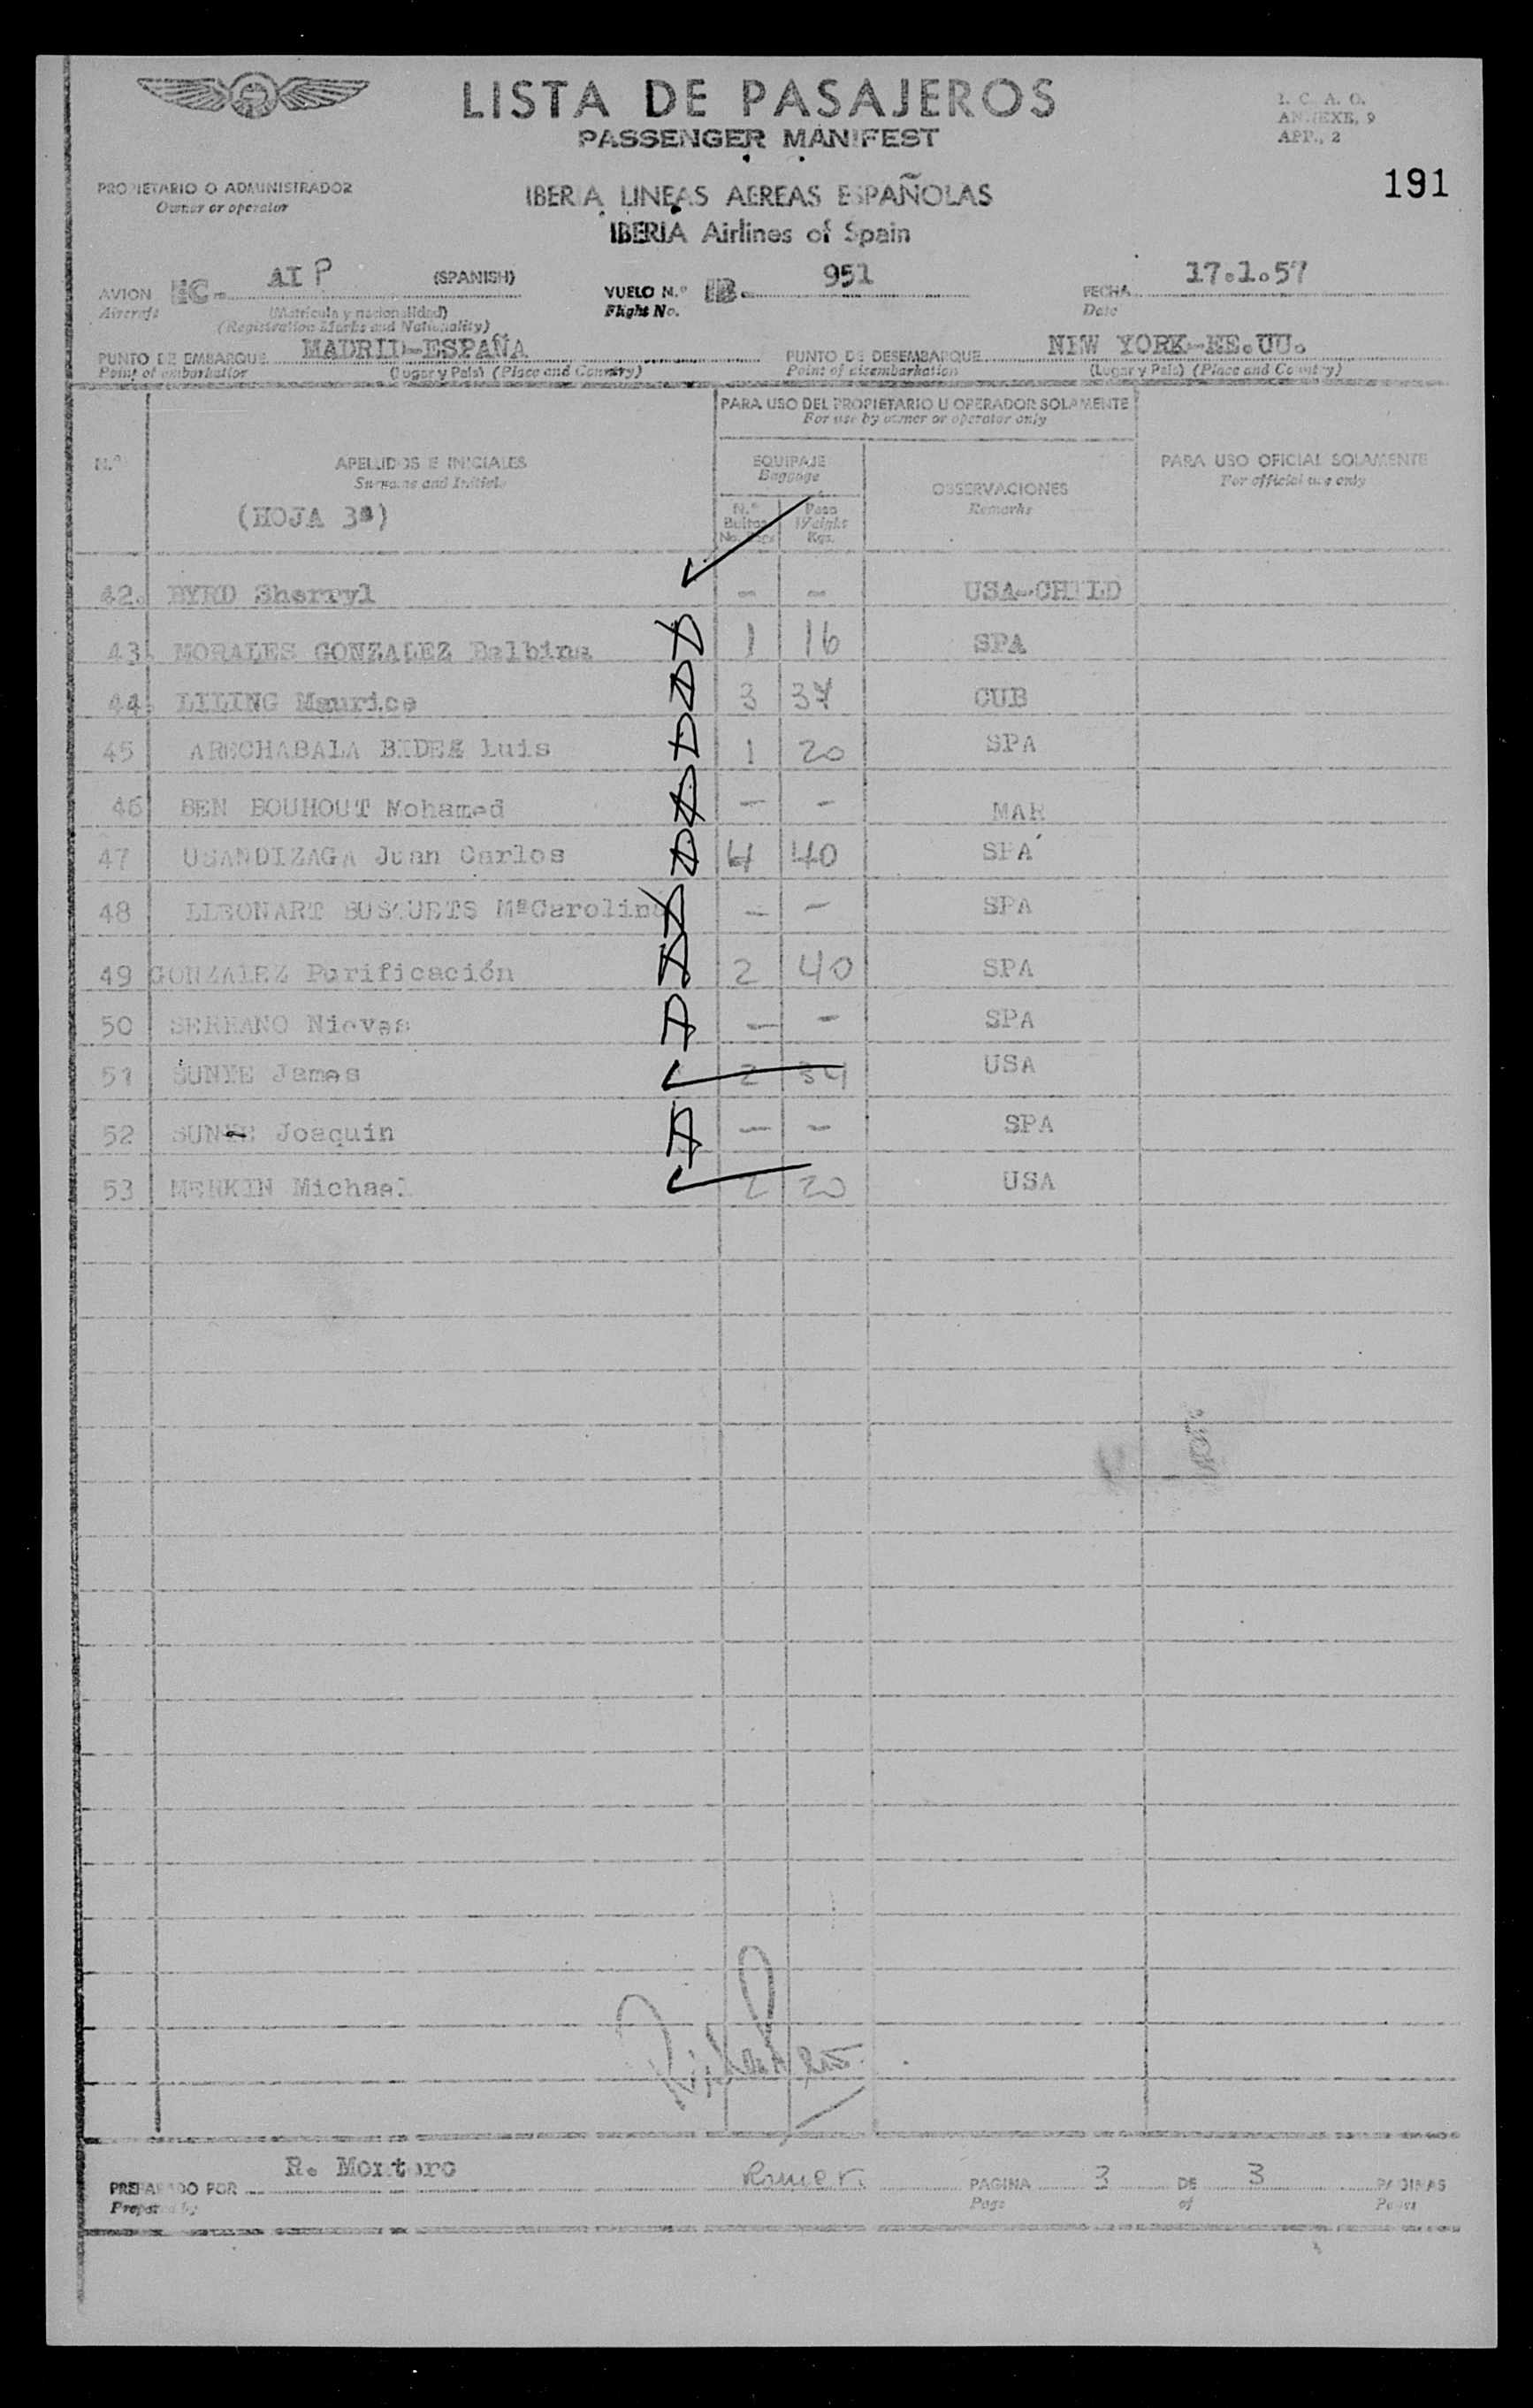 LISTA DE PASAJEROS
PASSENGER MANIFEST
I. C. A. O.
ANNEXE, 9
APP., 2
191
PROPIETARIO O ADMINISTRADOR
Owner or operator
IBERIA LINEAS AEREAS ESPAÑOLAS
IBERIA Airlines of Spain
AVION EC- AIP (SPANISH) VUELO N.º IB- 951 FECHA 17.1.57
Aircraft (Matrícula y nacionalidad) Flight No. Date
(Registration Marks and Nationality)
PUNTO DE EMBARQUE MADRID-ESPAÑA PUNTO DE DESEMBARQUE NEW YORK-EE.UU.
Point of embarkation (Lugar y País) (Place and Country) Point of disembarkation (Lugar y País) (Place and Country)
PARA USO DEL PROPIETARIO U OPERADOR SOLAMENTE
For use by owner or operator only
N.º APELLIDOS E INICIALES EQUIPAJE OBSERVACIONES PARA USO OFICIAL SOLAMENTE
Surname and Initials Baggage Remarks For official use only
(HOJA 3ª) N.º Bultos Peso Weight Kgs.
42. BYRD Sherryl - - USA-CHILD
43. MORALES GONZALEZ Balbina 1 16 SPA
44. LILING Maurice 3 37 CUB
45 ARECHABALA Luis 1 20 SPA
46 BEN BOUHOUT Mohamed - - MAR
47 USANDIZAGA Juan Carlos 4 40 SPA
48 LLEONART BUSQUETS MªCarolina - - SPA
49 GONZALEZ Purificación 2 40 SPA
50 SERRANO Nieves - - SPA
51 SUNYE James 2 34 USA
52 SUNYE Joaquin - - SPA
53 MERKIN Michael 2 20 USA
PREPARADO POR R. Montoro PAGINA 3 DE 3 PAGINAS
Prepared by Page of Pages